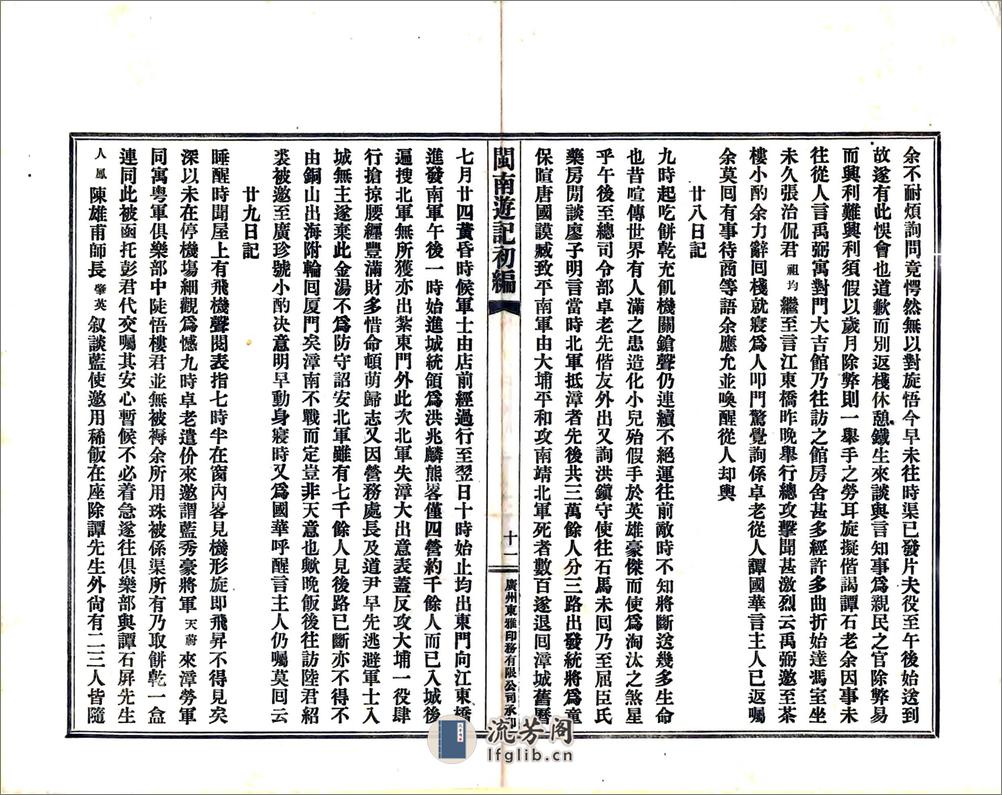 余不耐煩詢問竟愕然無以對旋悟今早未往時渠已發片夫役至午後始送到
故遂有此悞會也道歉而別返棧休憩鐵生來談與言知事爲親民之官除弊易
而興利難興利須假以歲月除弊則一舉手之勞耳旋擬偕謁譚石老余因事未
往從人言禹弼寓對門大吉館乃往訪之館房舍甚多經許多曲折始達馮室坐
未久張治侃君祖均繼至言江東橋昨晚舉行總攻擊聞甚激烈云禹弼邀至茶
樓小酌余力辭回棧就寢爲人叩門驚覺詢係卓老從人譚國華言主人已返囑
余莫回有事待商等語余應允並喚醒從人却輿
廿八日記
九時起吃餅乾充飢機關鎗聲仍連續不絕運往前敵時不知將斷送幾多生命
也昔喧傳世界有人滿之患造化小兒殆假手於英雄豪傑而使爲淘汰之煞星
乎午後至總司令部卓老先偕友外出又詢洪鎮守使往石馬未回乃至屈臣氏
藥房閒談廖子明言當時北軍抵漳者先後共三萬餘人分三路出發統將爲童
保暄唐國謨臧致平南軍由大埔平和攻南靖北軍死者數百遂退回漳城舊曆
閩南遊記初編
十一
廣州東雅印務有限公司承印
七月廿四黃昏時候軍士由店前經過行至翌日十時始止均出東門向江東橋
進發南軍午後一時始進城統領爲洪兆麟熊畧僅四營約千餘人而已入城後
遍搜北軍無所獲亦出紮東門外此次北軍失漳大出意表蓋反攻大埔一役肆
行搶掠腰纏豐滿財多惜命頓萌歸志又因營務處長及道尹早先逃避軍士入
城無主遂棄此金湯不爲防守詔安北軍雖有七千餘人見後路已斷亦不得不
由銅山出海附輪回厦門矣漳南不戰而定豈非天意也歟晚飯後往訪陸君紹
裘被邀至廣珍號小酌决意明早動身寢時又爲國華呼醒言主人仍囑莫回云
廿九日記
睡醒時聞屋上有飛機聲閱表指七時半在窗內畧見機形旋即飛昇不得見矣
深以未在停機塲細觀爲憾九時卓老遣价來邀謂藍秀豪將軍天蔚來漳勞軍
同寓粵軍俱樂部中陡悟樓君並無被褥余所用珠被係渠所有乃取餅乾一盒
連同此被函托彭君代交囑其安心暫候不必着急遂往俱樂部與譚石屏先生
人鳳陳雄甫師長肇英叙談藍使邀用稀飯在座除譚先生外尙有二三人皆隨
流芳阁
lfglib.cn